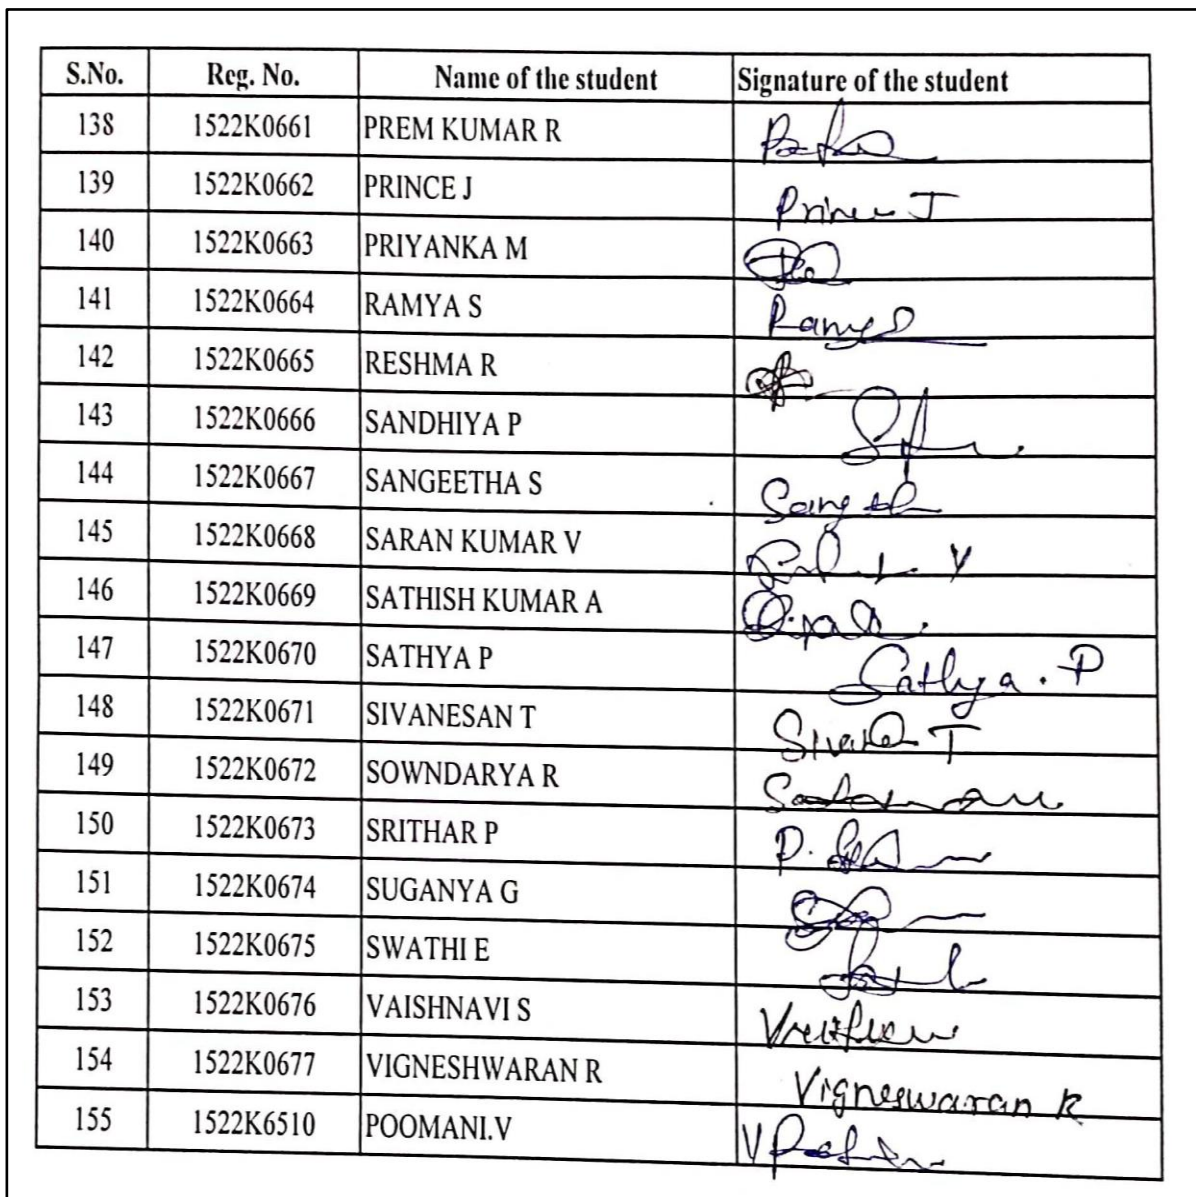 S.No. Reg. No. Name of the student Signature of the student
138 1522K0661 PREM KUMAR R
139 1522K0662 PRINCE J Prince J
140 1522K0663 PRIYANKA M
141 1522K0664 RAMYA S
142 1522K0665 RESHMA R
143 1522K0666 SANDHIYA P
144 1522K0667 SANGEETHA S
145 1522K0668 SARAN KUMAR V
146 1522K0669 SATHISH KUMAR A
147 1522K0670 SATHYA P Sathya . P
148 1522K0671 SIVANESAN T
149 1522K0672 SOWNDARYA R
150 1522K0673 SRITHAR P
151 1522K0674 SUGANYA G
152 1522K0675 SWATHI E
153 1522K0676 VAISHNAVI S
154 1522K0677 VIGNESHWARAN R Vigneswaran R
155 1522K6510 POOMANI.V